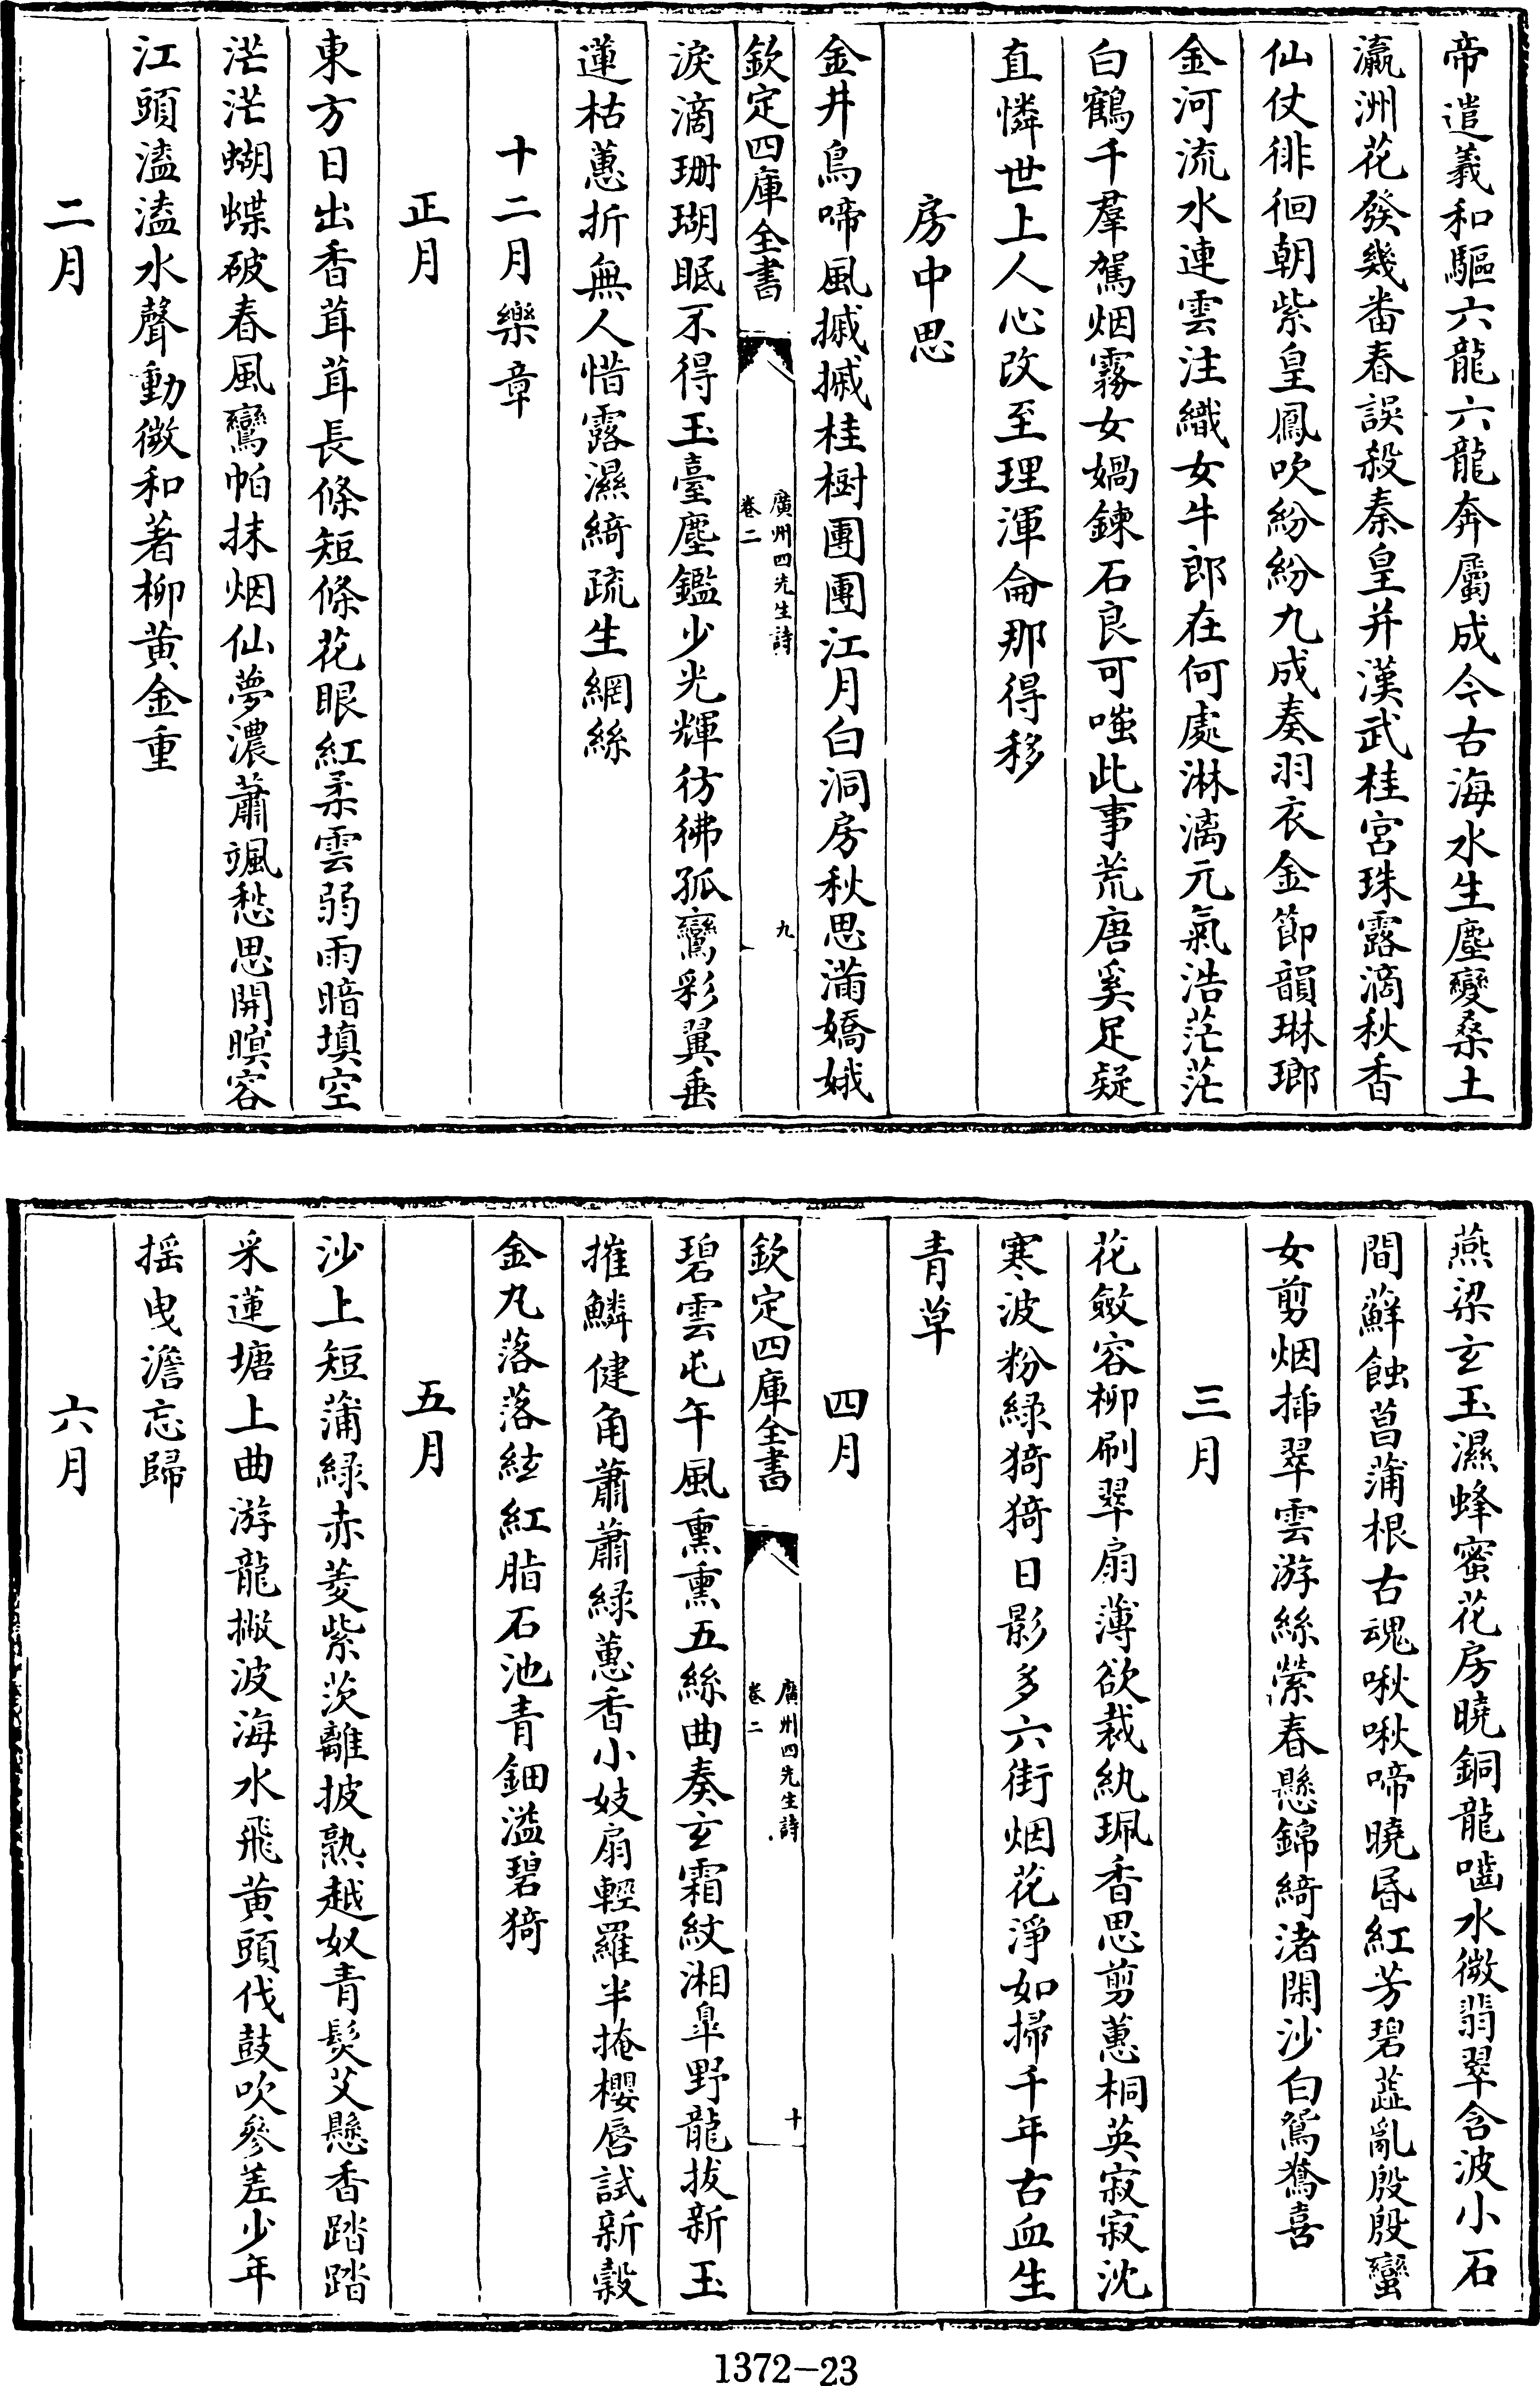 帝遣義和驅六龍六龍奔屬成今古海水生塵變桑土
瀛洲花發幾番春誤殺秦皇并漢武桂宮珠露滴秋香
仙仗徘徊朝紫皇鳳吹紛紛九成奏羽衣金節韻琳瑯
金河流水連雲注織女牛郎在何處淋漓元氣浩茫茫
白鶴千羣駕烟霧女媧鍊石良可嗤此事荒唐奚足疑
直憐世上人心改至理渾侖那得移
房中思
金井烏啼風摵摵桂樹團團江月白洞房秋思滿嬌娥
欽定四庫全書
廣州四先生詩
卷二
九
淚滴珊瑚眠不得玉臺塵鑑少光輝彷彿孤鸞彩翼垂
蓮枯蕙折無人惜露濕綺疏生網絲
十二月樂章
正月
東方日出香茸茸長條短條花眼紅柔雲弱雨暗填空
茫茫蝴蝶破春風鸞帕抹烟仙夢濃蕭颯愁思開暝容
江頭溘溘水聲動微和著柳黃金重
二月
燕梁玄玉濕蜂蜜花房曉銅龍嚙水微翡翠含波小石
間蘚蝕菖蒲根古魂啾啾啼曉昏紅芳碧蕋亂殷殷蠻
女剪烟揷翠雲游絲縈春懸錦綺渚閑沙白鴛鴦喜
三月
花斂容柳刷翠扇薄欲裁紈珮香思剪蕙桐英寂寂沈
寒波粉綠猗猗日影多六街烟花淨如掃千年古血生
青草
四月
欽定四庫全書
廣州四先生詩
卷二
十
碧雲屯午風熏熏五絲曲奏玄霜紋湘臯野龍拔新玉
摧鱗健角蕭蕭綠蕙香小妓扇輕羅半掩櫻唇試新穀
金丸落落紝紅脂石池青鈿溢碧猗
五月
沙上短蒲綠赤菱紫茨離披熟越奴青髮艾懸香踏踏
采蓮塘上曲游龍撇波海水飛黃頭伐鼓吹參差少年
揺曳澹忘歸
六月
1372-23